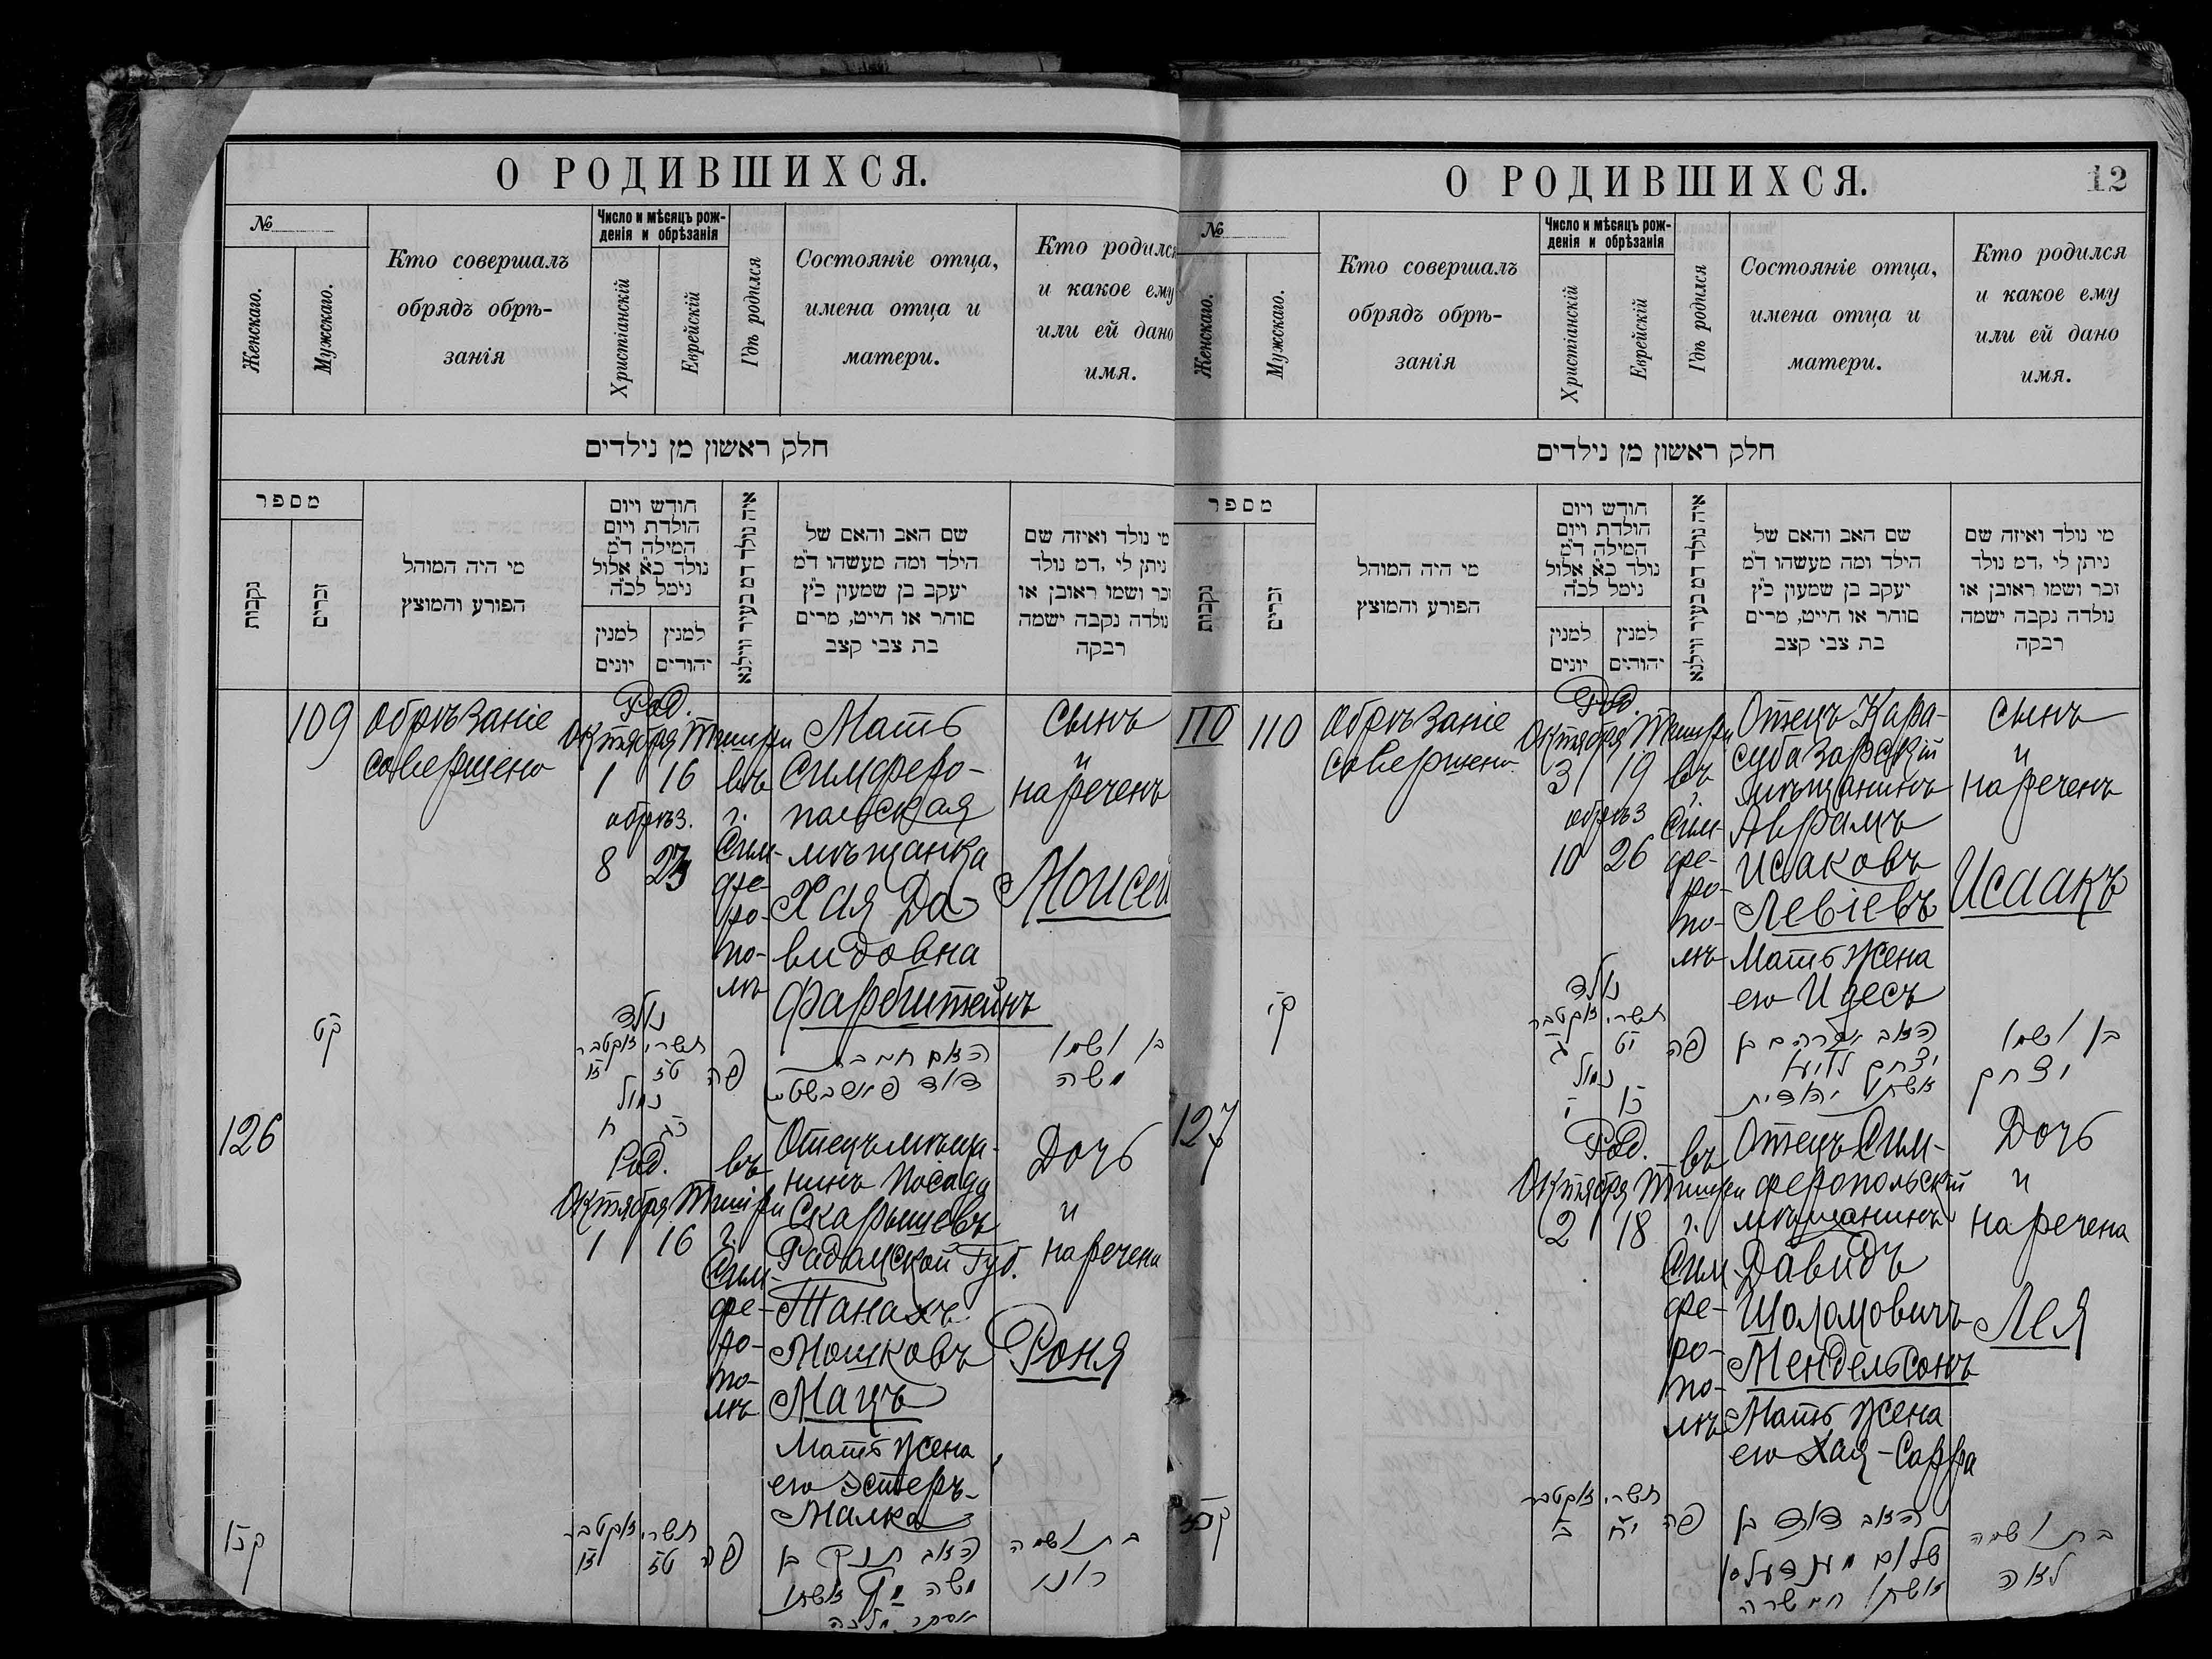 О РОДИВШИХСЯ.
№
Женскаго.
Мужскаго.
Кто совершалъ
обрядъ обрѣ-
занія
Число и мѣсяцъ рож-
денія и обрѣзанія
Христіанскій
Еврейскій
Гдѣ родился
Состояніе отца,
имена отца и
матери.
Кто родился
и какое ему
или ей дано
имя.
חלק ראשון מן נילדים
מספר
נקבות
זכרים
מי היה המוהל
הפורע והמוצץ
חודש ויום
הולדת ויום
המילה ד"מ
נולד כ"א אלול
נימל לכ"ה
למנין
יונים
למנין
יהודים
איה נולד דמ בעיר ווילנא
שם האב והאם של
הילד ומה מעשהו ד"מ
יעקב בן שמעון כ"ץ
סוחר או חייט, מרים
בת צבי קצב
מי נולד ואיזה שם
ניתן לי, דמ נולד
זכר ושמו ראובן או
נולדה נקבה ישמה
רבקה
109
Обрѣзаніе
совершено
Род.
Октября Тишри
1 16
обрѣз.
8 23
въ
г.
Сим-
фе-
ро-
по-
лѣ
Мать
Симферо-
польская
мѣщанка
Хая Да-
видовна
Фарбштейнъ
Сынъ
и
нареченъ
Моисей
קט
נולד
תשרי אקטבר
טז
נמול
כג ח
פה
האם חי' בת
דוד
בן ושמו
משה
126
Род.
Октября Тишри
1 16
въ
г.
Сим-
фе-
ро-
по-
лѣ
Отецъ мѣща-
нинъ посада
Скарышевъ
Радомской Губ.
Танахъ
Мошковъ
Мацъ
Мать жена
его Эстеръ-
Малка
Дочь
и
наречена
Роня
קכו
תשרי אקטבר
טז
פה
האב תנך בן
משה מץ אשתו
אסתר מלכה
בת ושמה
רוני
О РОДИВШИХСЯ.
12
№
Женскаго.
Мужскаго.
Кто совершалъ
обрядъ обрѣ-
занія
Число и мѣсяцъ рож-
денія и обрѣзанія
Христіанскій
Еврейскій
Гдѣ родился
Состояніе отца,
имена отца и
матери.
Кто родился
и какое ему
или ей дано
имя.
חלק ראשון מן נילדים
מספר
נקבות
זכרים
מי היה המוהל
הפורע והמוצץ
חודש ויום
הולדת ויום
המילה ד"מ
נולד כ"א אלול
נימל לכ"ה
למנין
יונים
למנין
יהודים
איה נולד דמ בעיר ווילנא
שם האב והאם של
הילד ומה מעשהו ד"מ
יעקב בן שמעון כ"ץ
סוחר או חייט, מרים
בת צבי קצב
מי נולד ואיזה שם
ניתן לי, דמ נולד
זכר ושמו ראובן או
נולדה נקבה ישמה
רבקה
110
110
Обрѣзаніе
совершено
Род.
Октября Тишри
3 19
обрѣз
10 26
въ
г.
Сим-
фе-
ро-
по-
лѣ
Отецъ Кара-
субазарскій
мѣщанинъ
Аврамъ
Исаковъ
Левіевъ
Мать жена
его Идесъ
Сынъ
и
нареченъ
Исаакъ
קי
נולד
תשרי אקטבר
יט ג
נמול
כו י
פה
האב אברהם בן
יצחק
אשתו יהודית
בן ושמו
יצחק
127
Род.
Октября Тишри
2 18
въ
г.
Сим-
фе-
ро-
по-
лѣ
Отецъ Сим-
феропольскій
мѣщанинъ
Давидъ
Шоломовичъ
Мендельсонъ
Мать жена
его Хая-Сарра
Дочь
и
наречена
Лея
קכז
תשרי אקטבר
יח ב
פה
האב דוד בן
שלום מענדעלסן
אשתו חי' שרה
בת ושמה
לאה